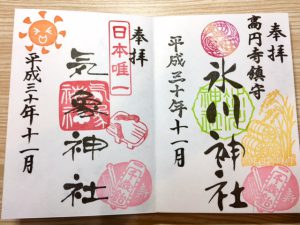 高円寺鎮守
奉拝
氷川神社
平成三十年十一月
奉拝
日本唯一
気象神社
平成三十年十一月